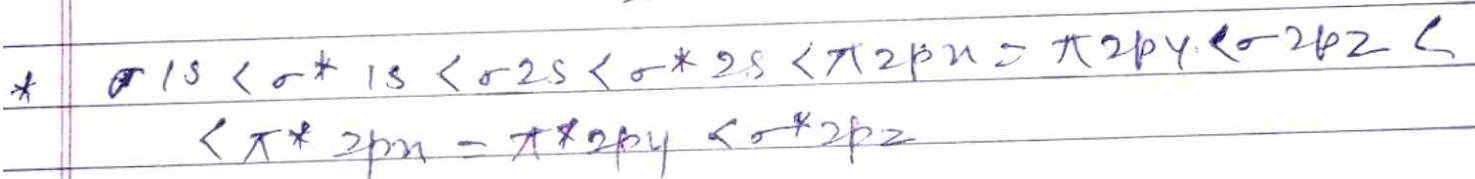 * σ1s < σ* 1s < σ2s < σ* 2s < π2px = π2py < σ2pz <
< π* 2px = π*2py < σ*2pz